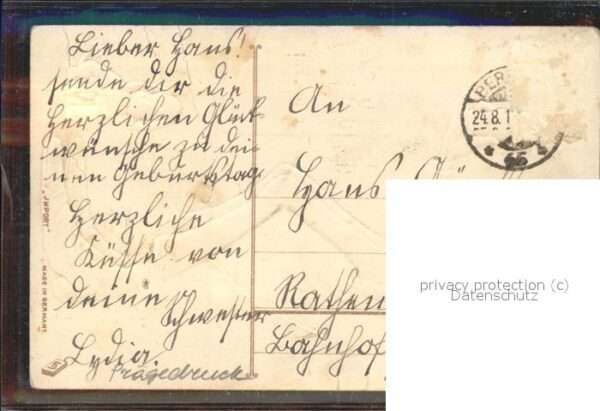 Lieber Hans!
sende dir die
herzlichen Glück-
wünsche zu dei-
nen Geburtstag.
Herzliche
Küsse von
deine Schwester
Lydia.
Prägedruck
"IMPORT"
MADE IN GERMANY
An
Hans
Rathen
Bahnhof
BER
24.8.1
privacy protection (c)
Datenschutz